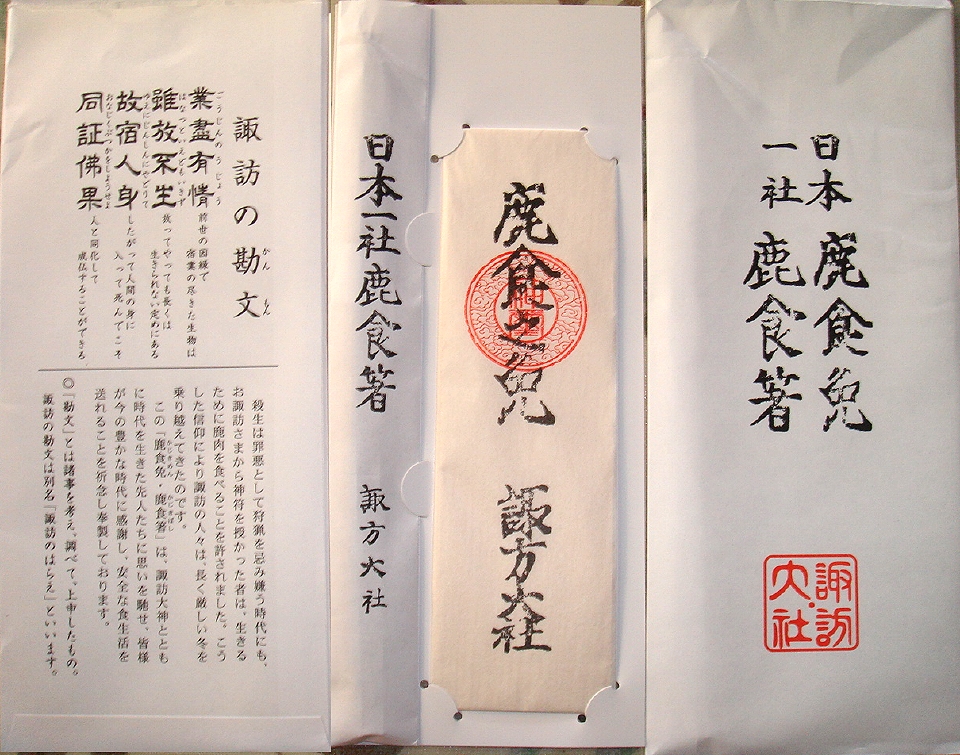 日本 鹿食免
一社 鹿食箸
諏訪
大社
鹿食之免 諏方大社
日本一社鹿食箸 諏方大社
諏訪の勘文
かんもん
業盡有情
ごうじんのうじょう
前世の因縁で
宿業の尽きた生物は
雖放不生
はなつといえどもいきず
放ってやっても長くは
生きられない定めにある
故宿人身
ゆえにじんしんにやどりて
したがって人間の身に
入って死んでこそ
同証佛果
おなじくぶつかをしょうせよ
人と同化して
成仏することができる
殺生は罪悪として狩猟を忌み嫌う時代にも、
お諏訪さまから神符を授かった者は、生きる
ために鹿肉を食べることを許されました。こう
した信仰により諏訪の人々は、長く厳しい冬を
乗り越えてきたのです。
この「鹿食免・鹿食箸」は、諏訪大神ととも
かじきめん かじきばし
に時代を生きた先人たちに思いを馳せ、皆様
が今の豊かな時代に感謝し、安全な食生活を
送れることを祈念し奉製しております。
◎「勘文」とは諸事を考え、調べて、上申したもの。
諏訪の勘文は別名「諏訪のはらえ」といいます。